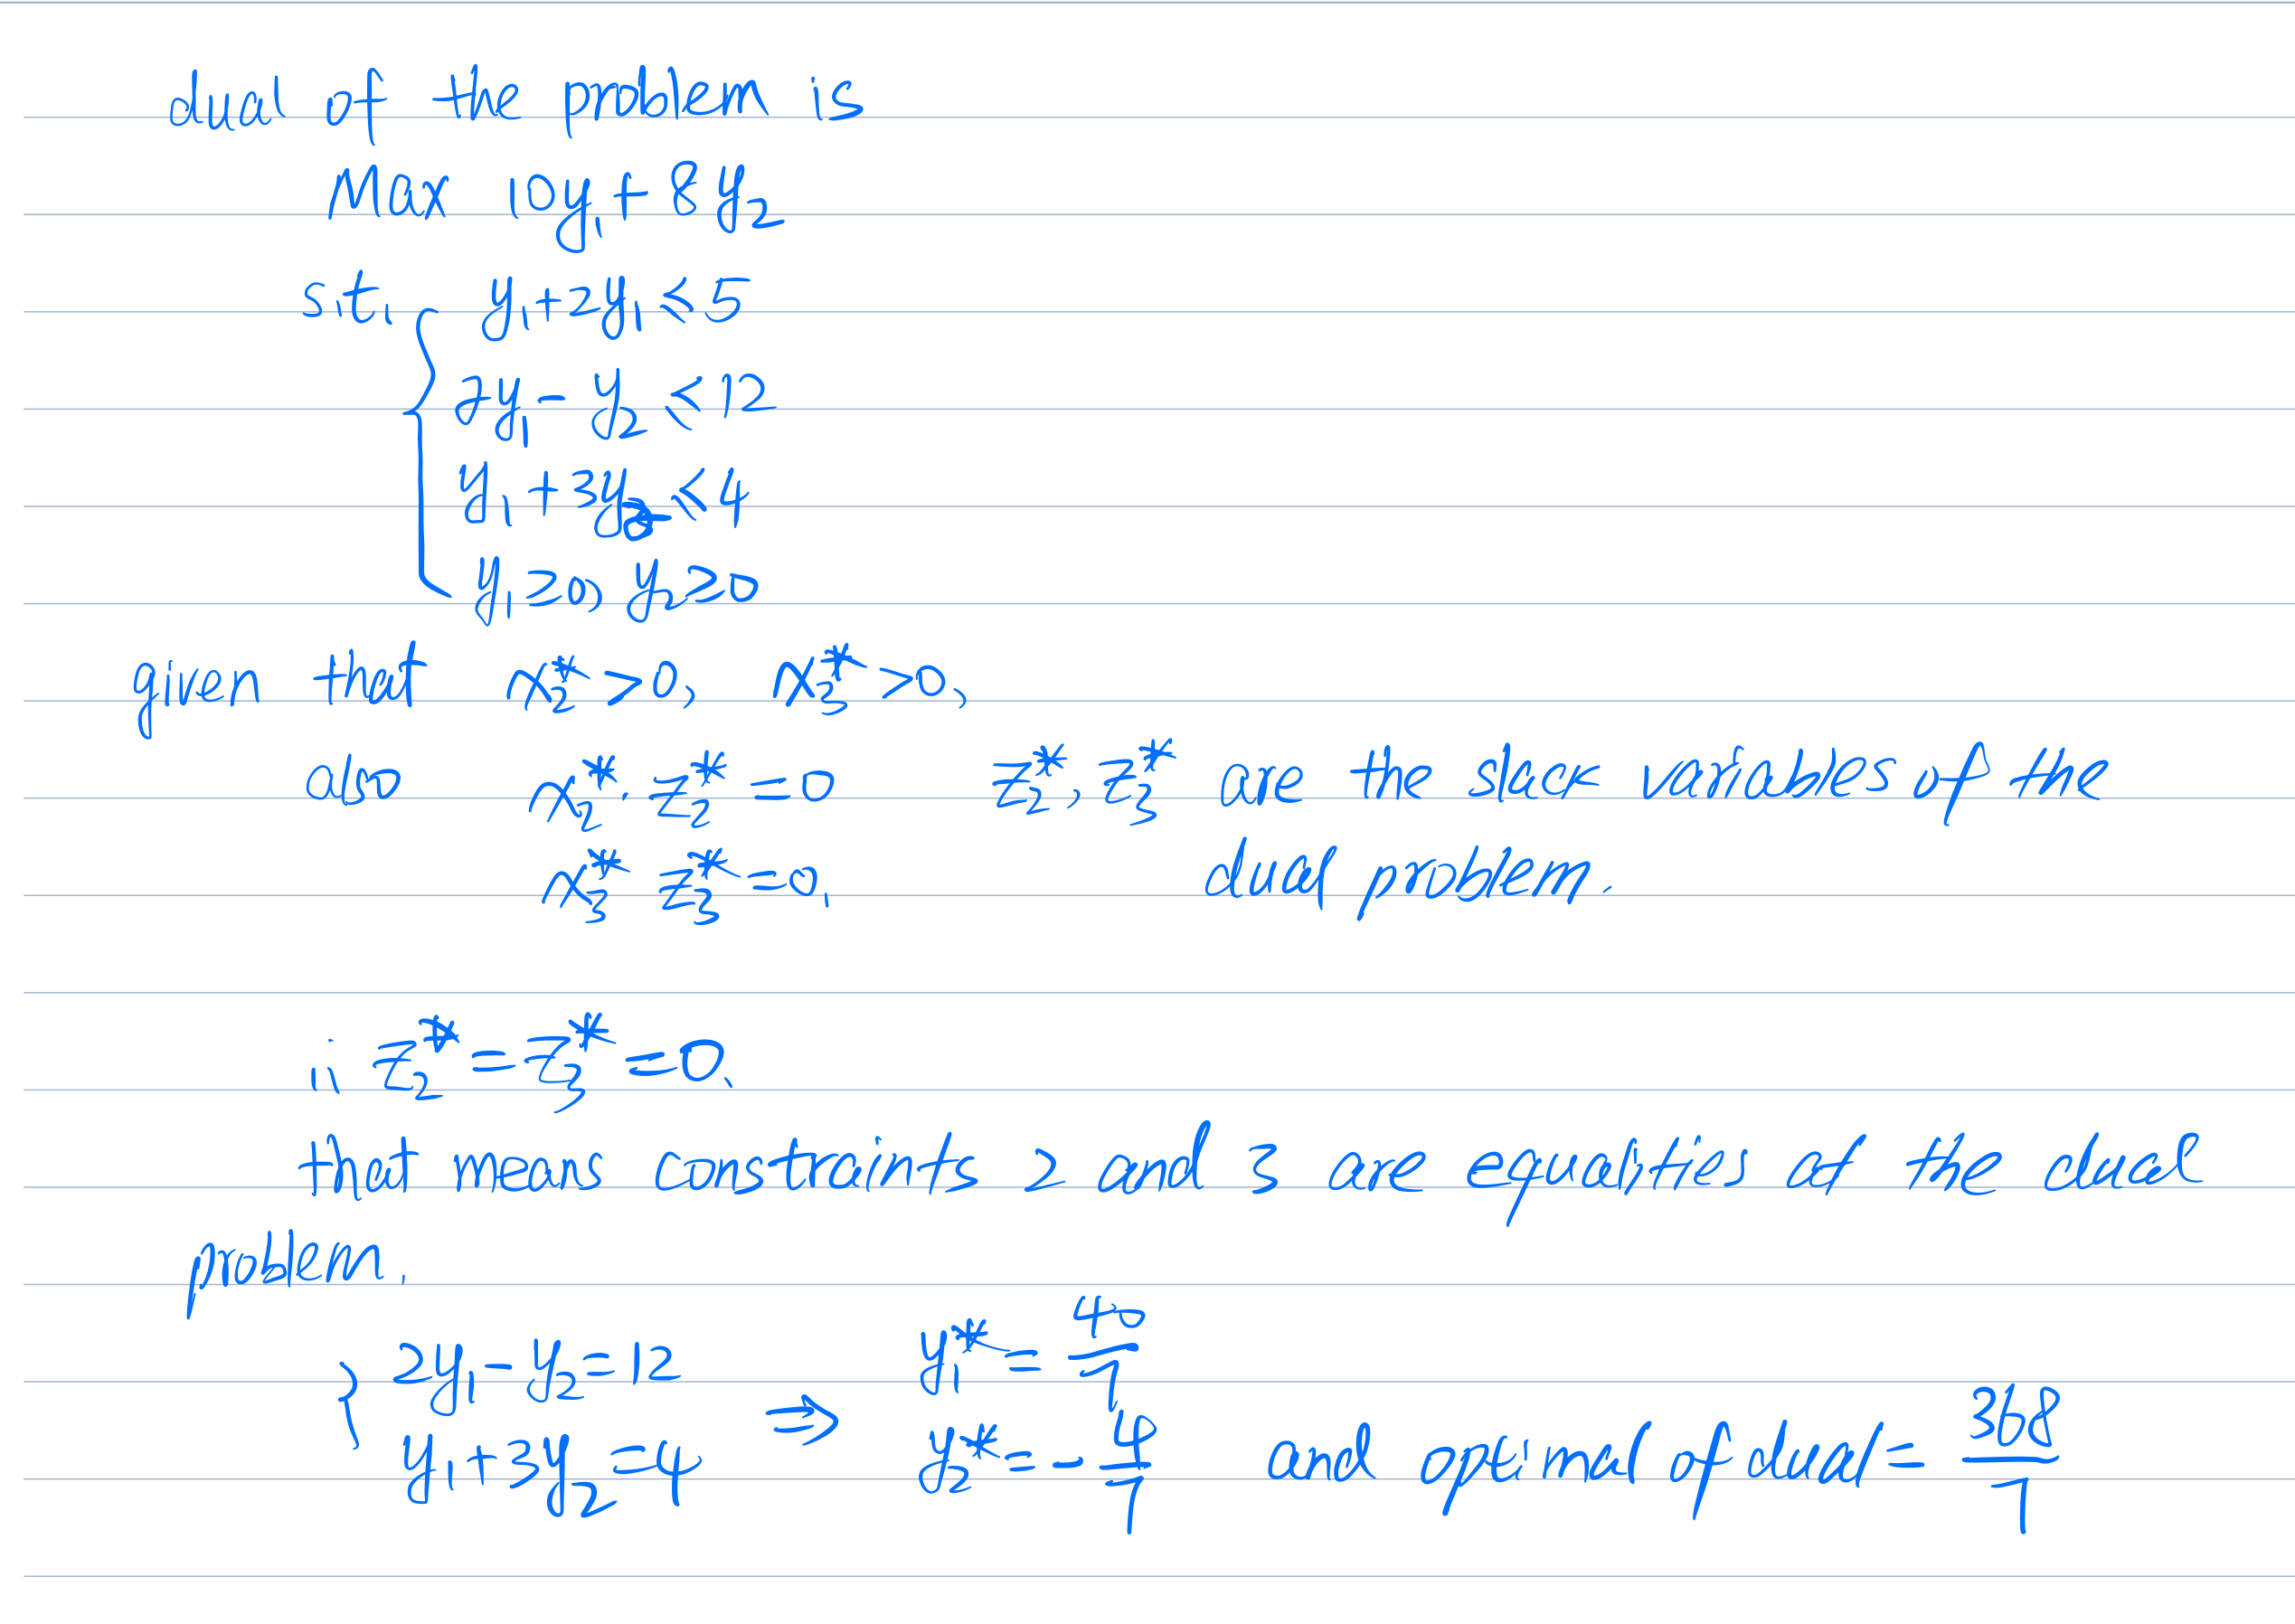 dual of the problem is
Max 10y₁ + 8y₂
s.t. y₁ + 2y₁ < 5
2y₁ - y₂ < 12
y₁ + 3y₂ < 4
y₁ ≥ 0, y₂ ≥ 0
given that x₂* > 0, x₃* > 0,
also x₂* · z₂* = 0 z₂*, z₃* are the slack variables of the
x₃* z₃* = 0, dual problem.
z₂* = z₃* = 0,
that mens constraints 2 and 3 are equalities at the dual
problem.
2y₁ - y₂ = 12 ⇒ y₁* = 40/7
y₁ + 3y₂ = 4 y₂* = - 4/7 and optimal of dual = 368/7